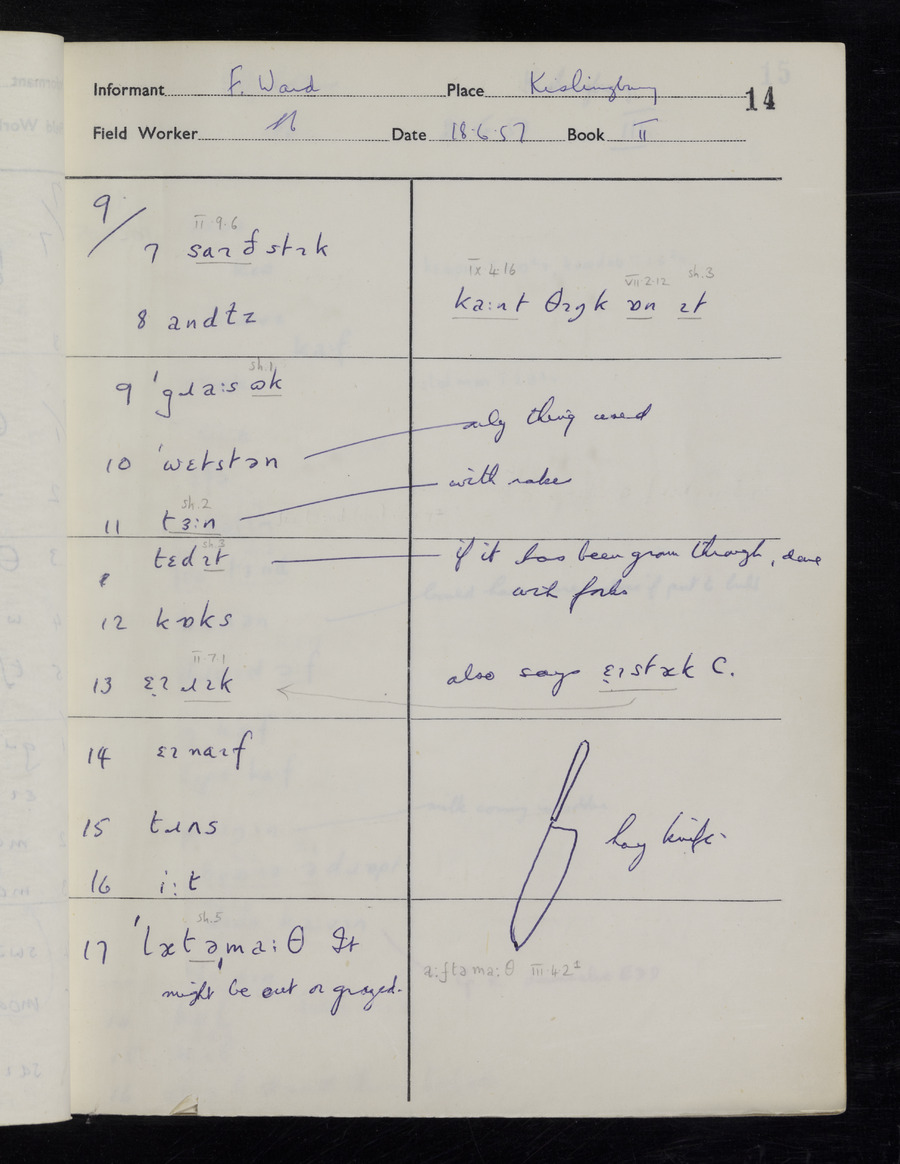 Informant F. Ward Place Kislingbury 14
Field Worker Date 18·6·57 Book II
9/
II·9·6
7 saɪð stɪk
IX 4·16 VII·2·12 sh.3
kɑːnt θɪŋk ɒn ɪt
8 andɫz
sh.1
9 ˈgɹɑːs ʊk
only thing used
10 ˈwɛtstən
with rakes
sh.2
11 tɜːn
sh.3
tɛd ɪt
if it has been grown through, done
with forks
12 kɒks
II·7·1
13 ɛɪ ɹɪk
also says ɛɪstæk C.
14 ɛɪ naɪf
15 tɹʌs
hay knife
16 iːt
sh.5
17 ˈlætəˌmaːθ It
might be cut or grazed.
aːftəmaːθ III·4·2¹